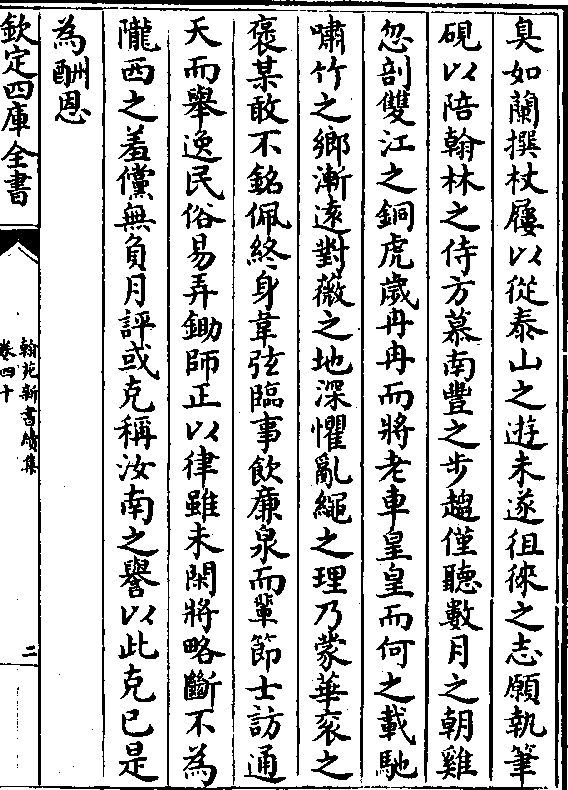 臭如蘭撰杖屨以從泰山之遊未遂徂徠之志願執筆
硯以陪翰林之侍方慕南豐之步趨僅聽數月之朝雞
忽剖雙江之銅虎歲冉冉而將老車皇皇而何之載馳
嘯竹之鄉漸遠對薇之地深懼亂繩之理乃蒙華衮之
褒某敢不銘佩終身韋弦臨事飲廉泉而輩節士訪通
天而舉逸民俗易弄鋤師正以律雖未閑將略斷不為
隴西之羞儻無負月評或克稱汝南之譽以此克已是
為酬恩
欽定四庫全書
翰苑新書續集
卷四十
二